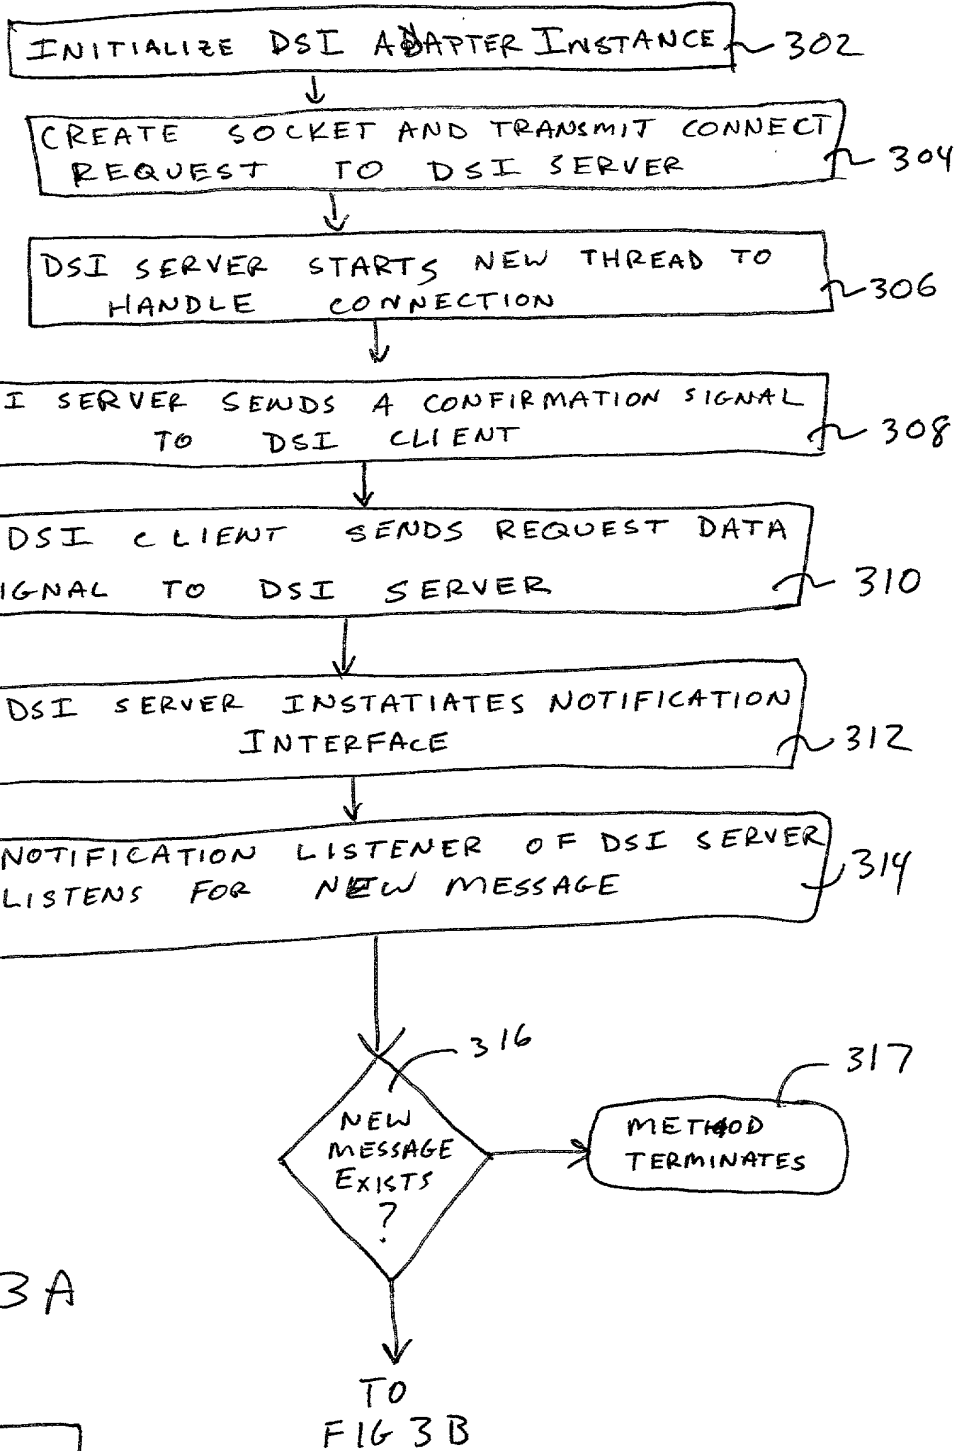 INITIALIZE DSI ADAPTER INSTANCE 302
CREATE SOCKET AND TRANSMIT CONNECT
REQUEST TO DSI SERVER 304
DSI SERVER STARTS NEW THREAD TO
HANDLE CONNECTION 306
I SERVER SENDS A CONFIRMATION SIGNAL
TO DSI CLIENT 308
DSI CLIENT SENDS REQUEST DATA
IGNAL TO DSI SERVER 310
DSI SERVER INSTATIATES NOTIFICATION
INTERFACE 312
NOTIFICATION LISTENER OF DSI SERVER
LISTENS FOR NEW MESSAGE 314
316
NEW
MESSAGE
EXISTS
?
317
METHOD
TERMINATES
3A
TO
FIG 3B